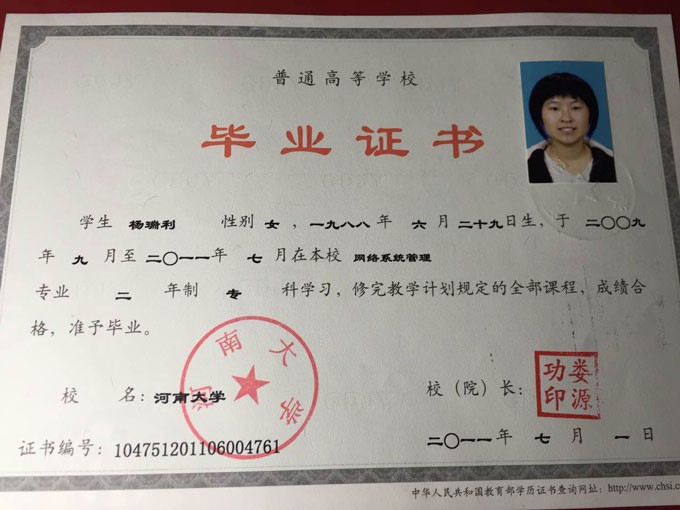 普通高等学校
毕业证书
学生 杨瑞利 性别 女，一九八八年 六 月 二十九日生，于 二〇〇九
年 九 月至 二〇一一年 七 月在本校 网络系统管理
专业 二 年制 专 科学习，修完教学计划规定的全部课程，成绩合
格，准予毕业。
河南大学
校 名：河南大学
校（院）长：
娄源功印
证书编号：104751201106004761
二〇一一年 七 月 一日
中华人民共和国教育部学历证书查询网址：http://www.chsi.c